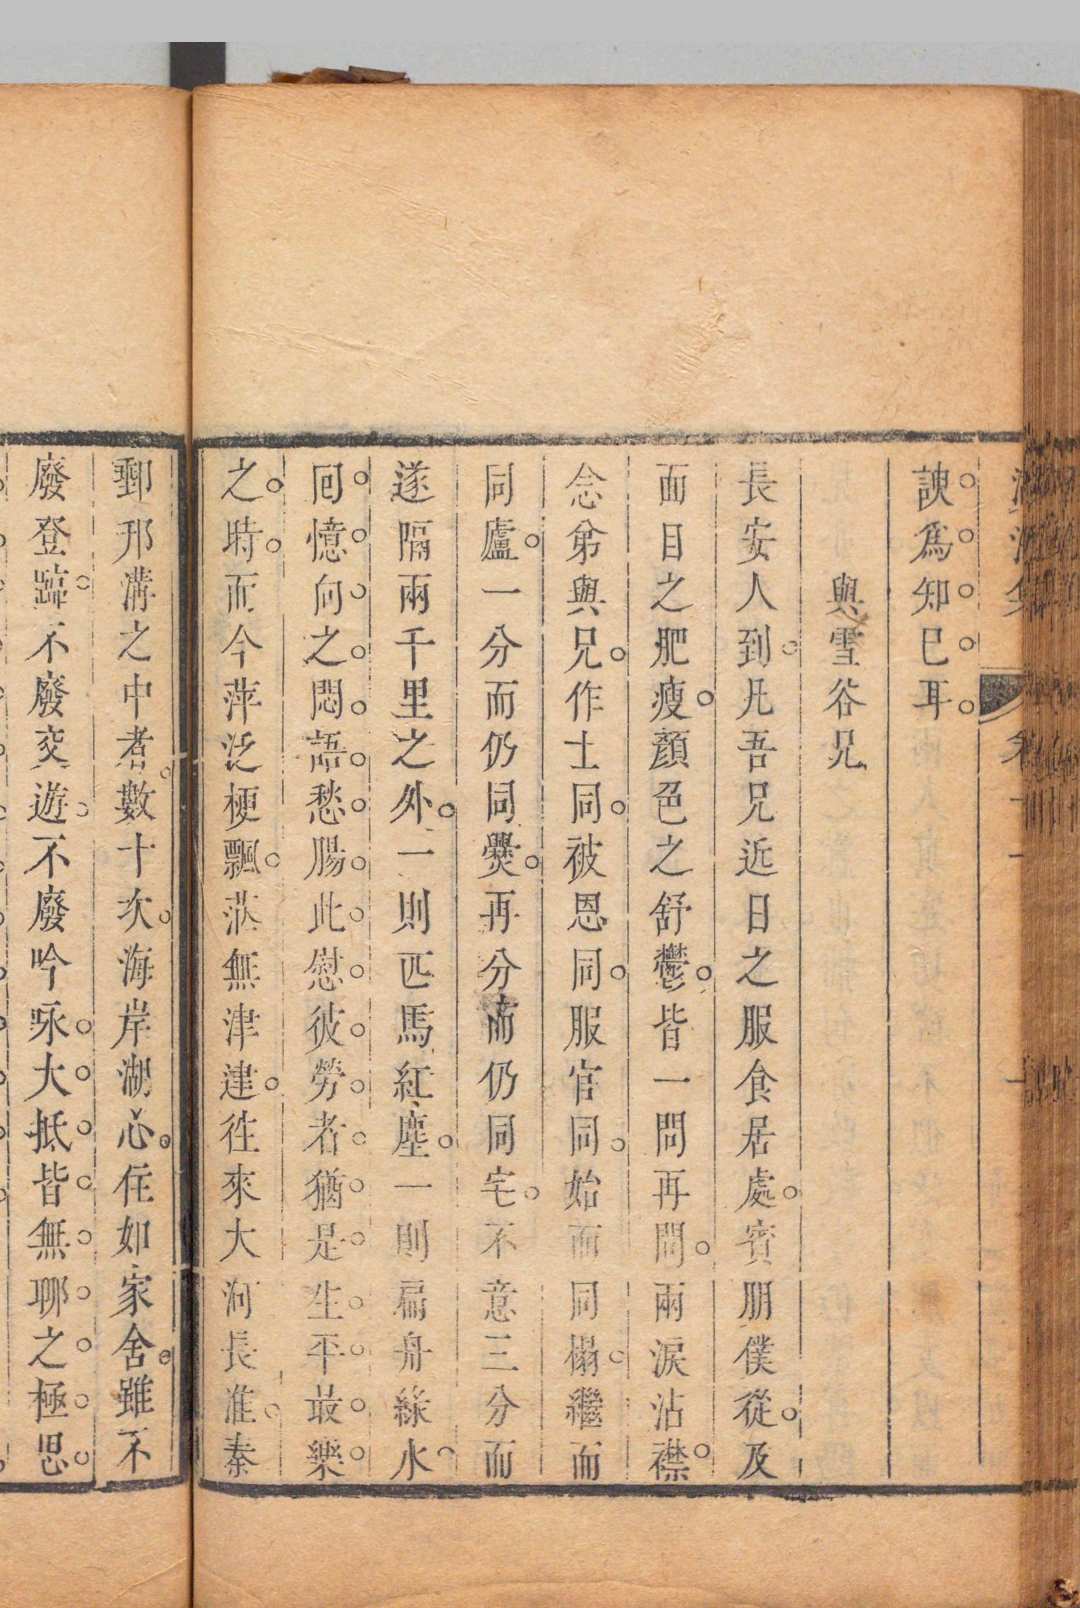 諛爲知己耳
與雪谷兄
長安人到凡吾兄近日之服食居處賓朋僕從及
面目之肥瘦顏色之舒鬱皆一問再問兩淚沾襟
念弟與兄作士同被恩同服官同始而同榻繼而
同廬一分而仍同爨再分而仍同宅不意三分而
遂隔兩千里之外一則匹馬紅塵一則扁舟綠水
囘憶向之悶語愁腸此慰彼勞者猶是生平最樂
之時而今萍泛梗飄茫無津逮徃來大河長淮秦
郵邗溝之中者數十次海岸湖心住如家舍雖不
廢登躋不廢交遊不廢吟咏大抵皆無聊之極思